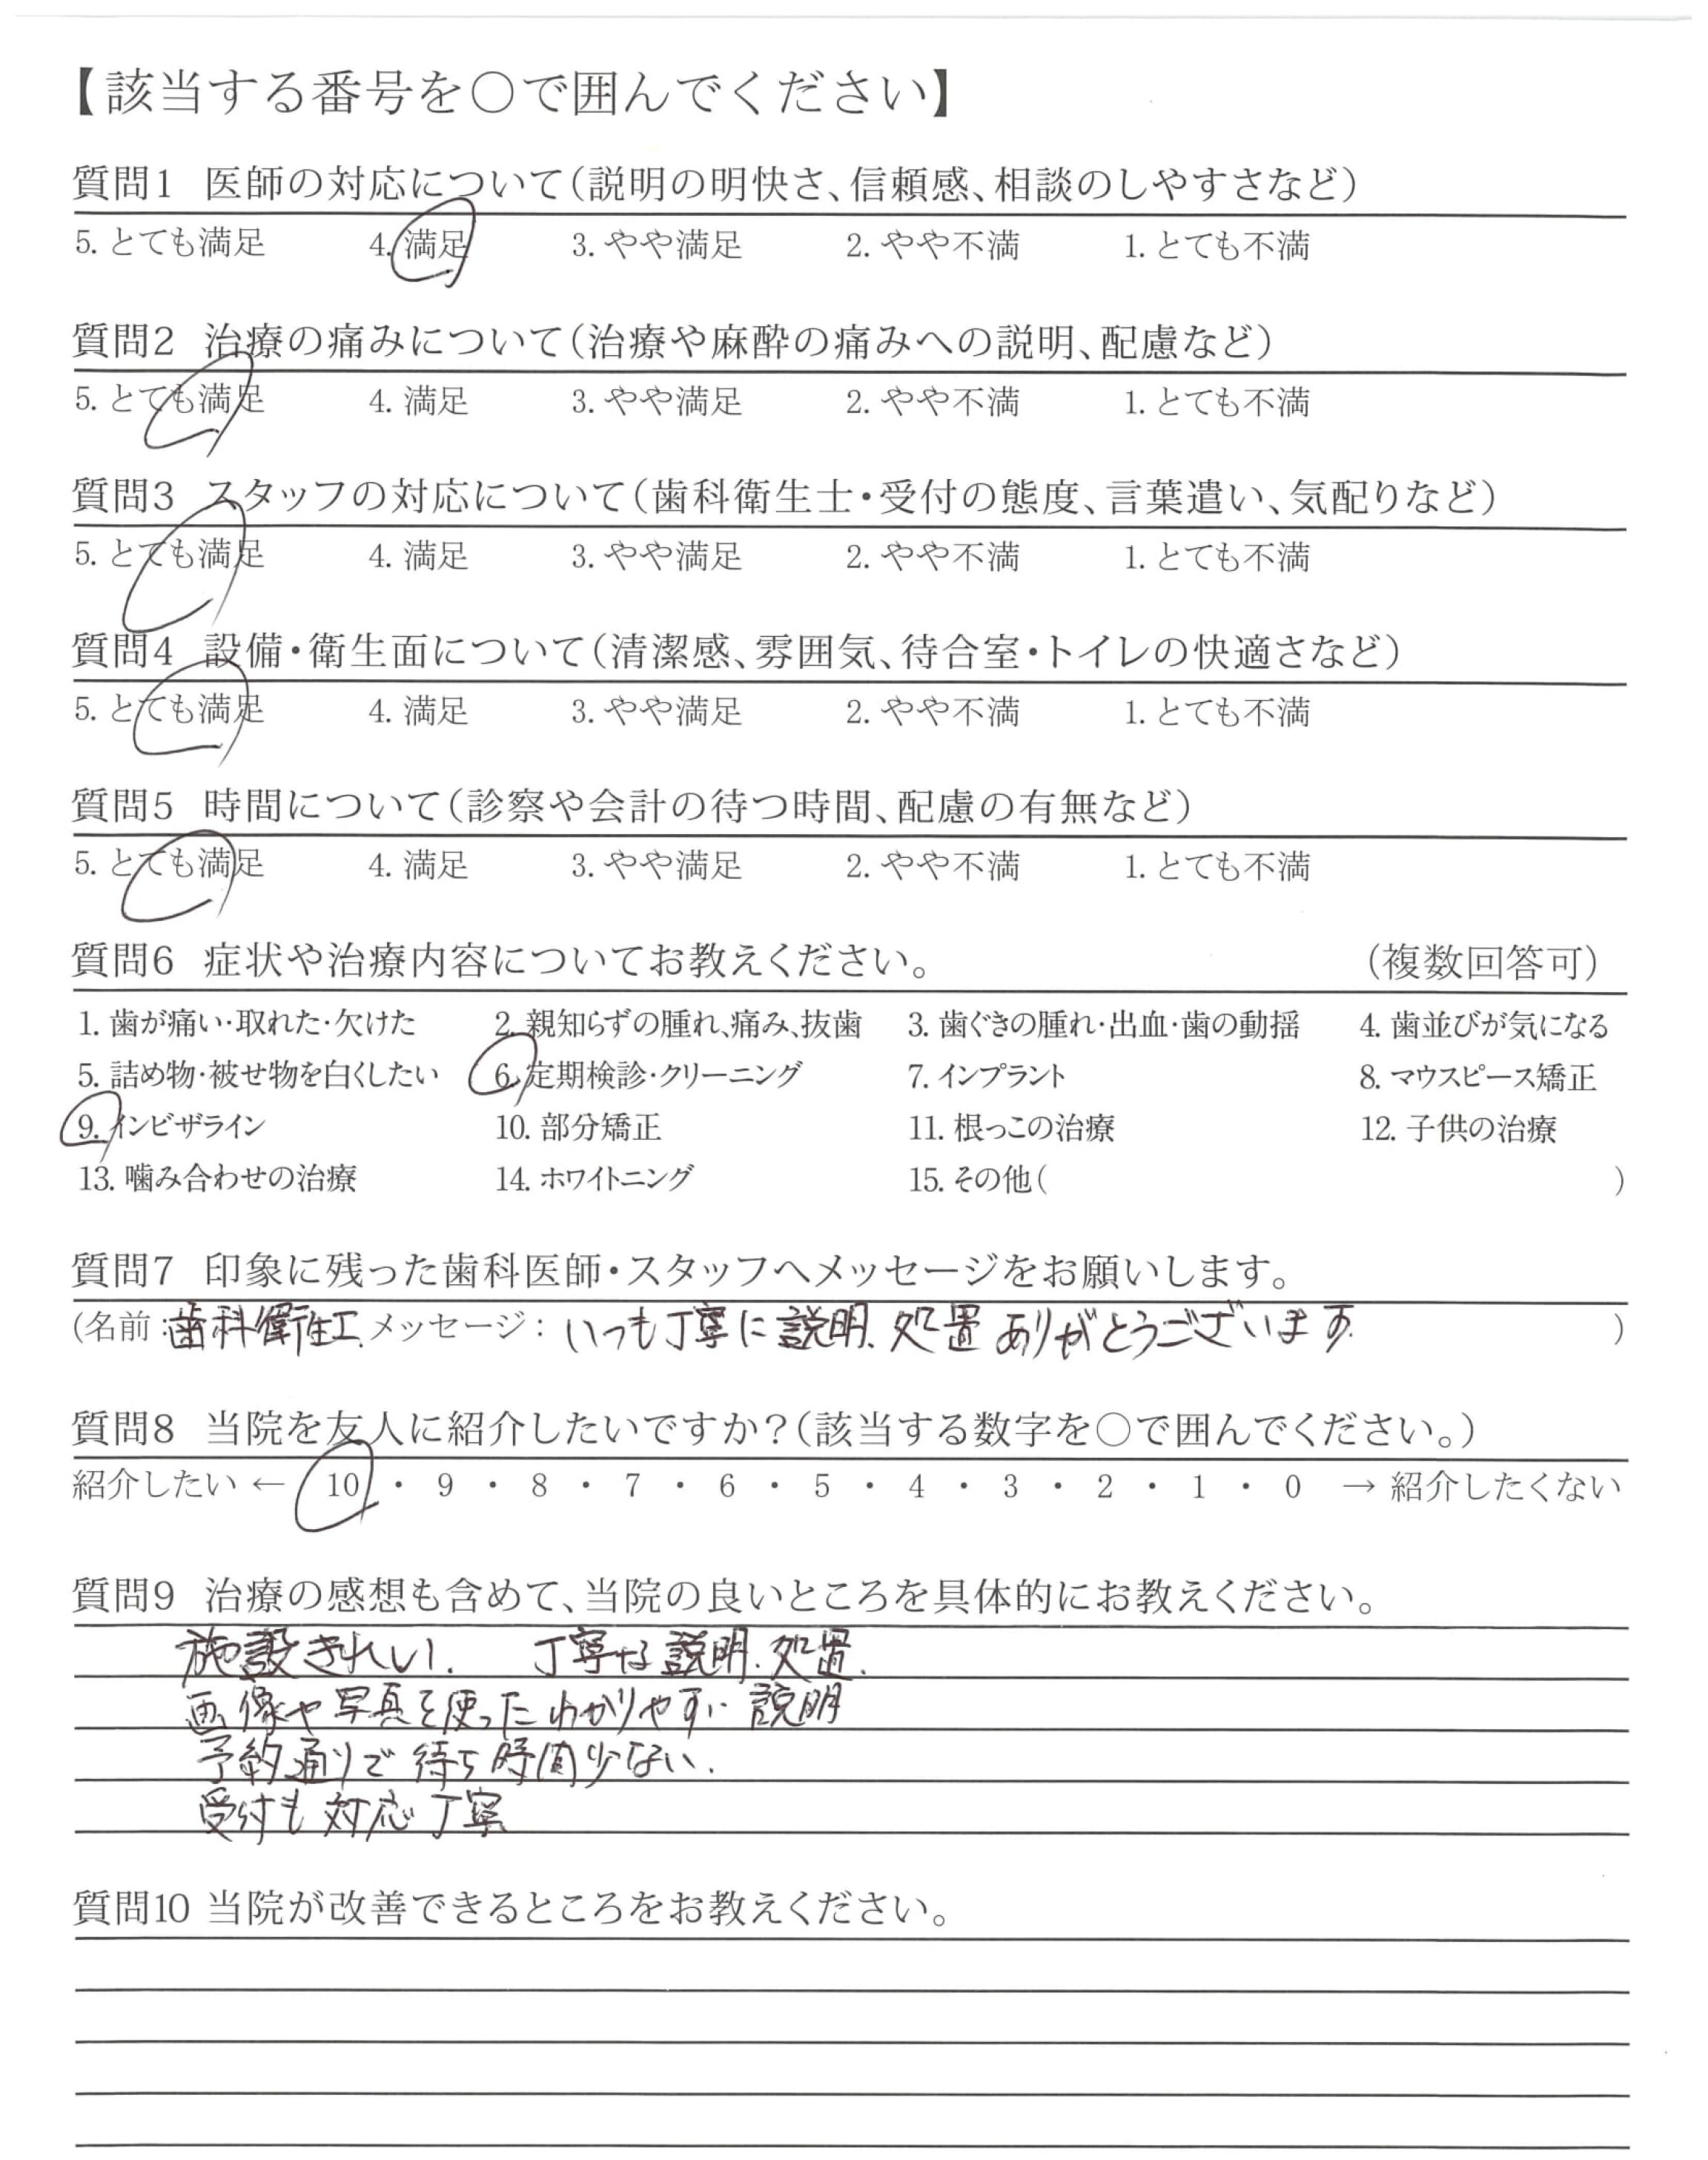 【該当する番号を○で囲んでください】
質問1 医師の対応について(説明の明快さ、信頼感、相談のしやすさなど)
5. とても満足 4. 満足 3. やや満足 2. やや不満 1. とても不満
質問2 治療の痛みについて(治療や麻酔の痛みへの説明、配慮など)
5. とても満足 4. 満足 3. やや満足 2. やや不満 1. とても不満
質問3 スタッフの対応について(歯科衛生士・受付の態度、言葉遣い、気配りなど)
5. とても満足 4. 満足 3. やや満足 2. やや不満 1. とても不満
質問4 設備・衛生面について(清潔感、雰囲気、待合室・トイレの快適さなど)
5. とても満足 4. 満足 3. やや満足 2. やや不満 1. とても不満
質問5 時間について(診察や会計の待つ時間、配慮の有無など)
5. とても満足 4. 満足 3. やや満足 2. やや不満 1. とても不満
質問6 症状や治療内容についてお教えください。 (複数回答可)
1. 歯が痛い・取れた・欠けた 2. 親知らずの腫れ、痛み、抜歯 3. 歯ぐきの腫れ・出血・歯の動揺 4. 歯並びが気になる
5. 詰め物・被せ物を白くしたい 6. 定期検診・クリーニング 7. インプラント 8. マウスピース矯正
9. インビザライン 10. 部分矯正 11. 根っこの治療 12. 子供の治療
13. 噛み合わせの治療 14. ホワイトニング 15. その他( )
質問7 印象に残った歯科医師・スタッフへメッセージをお願いします。
(名前:歯科衛生士 メッセージ: いつも丁寧に説明、処置ありがとうございます )
質問8 当院を友人に紹介したいですか?(該当する数字を○で囲んでください。)
紹介したい ← 10 ・ 9 ・ 8 ・ 7 ・ 6 ・ 5 ・ 4 ・ 3 ・ 2 ・ 1 ・ 0 → 紹介したくない
質問9 治療の感想も含めて、当院の良いところを具体的にお教えください。
施設きれい. 丁寧な説明.処置.
画像や写真を使ったわかりやすい説明
予約通りで待ち時間少ない.
受付も対応丁寧
質問10 当院が改善できるところをお教えください。